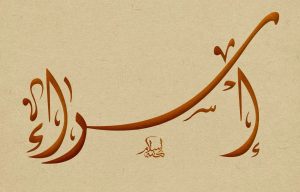 إسراء